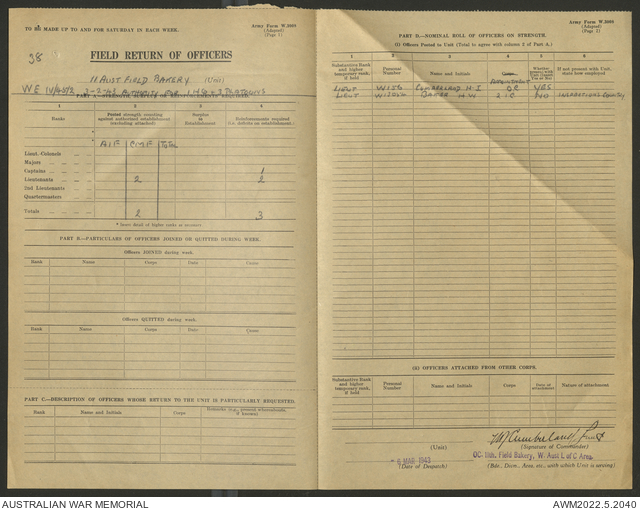 TO BE MADE UP TO AND FOR SATURDAY IN EACH WEEK.
Army Form W.3008
(Adapted)
(Page 1)
38
FIELD RETURN OF OFFICERS
11 AUST FIELD BAKERY (Unit)
WE IV/458/2 2-2-43 AUTHORITY FOR 1 HQ & 3 PLATOONS
1 2 3 4
Ranks
Posted strength counting against authorised establishment (excluding attached)
Surplus to Establishment
Reinforcements required (i.e. deficits on establishment)
AIF CMF TOTAL
Lieut. Colonels
Majors
Captains 1
Lieutenants 2 2
2nd Lieutenants
Quartermasters
Totals 2 3
* Insert detail of higher ranks as necessary
PART B.—PARTICULARS OF OFFICERS JOINED OR QUITTED DURING WEEK.
Officers JOINED during week.
Rank Name Corps Date Cause
Officers QUITTED during week.
Rank Name Corps Date Cause
PART C.—DESCRIPTION OF OFFICERS WHOSE RETURN TO THE UNIT IS PARTICULARLY REQUESTED.
Rank Name and Initials Corps Remarks (e.g., present whereabouts, if known)
Army Form W.3008
(Adapted)
(Page 2)
PART D.—NOMINAL ROLL OF OFFICERS ON STRENGTH.
(i) Officers Posted to Unit (Total to agree with column 2 of Part A.)
1 2 3 4 5 6
Substantive Rank and higher temporary rank, if held
Personal Number
Name and Initials
Corps
APPOINTMENT
Whether present with Unit (insert Yes or No)
If not present with Unit, state how employed
LIEUT CUMBERLAND H.J OC YES
LIEUT H.W. 2 I/C NO
(ii) OFFICERS ATTACHED FROM OTHER CORPS.
Substantive Rank and higher temporary rank, if held
Personal Number
Name and Initials
Corps
Date of attachment
Nature of attachment
(Unit)
Cumberland Lieut
(Signature of Commander)
MAR 1943
(Date of Despatch)
OC. 11th. Field Bakery, W. Aust L of C Area.
(Bde., Divn., Area, etc., with which Unit is serving)
AUSTRALIAN WAR MEMORIAL
AWM2022.5.2040